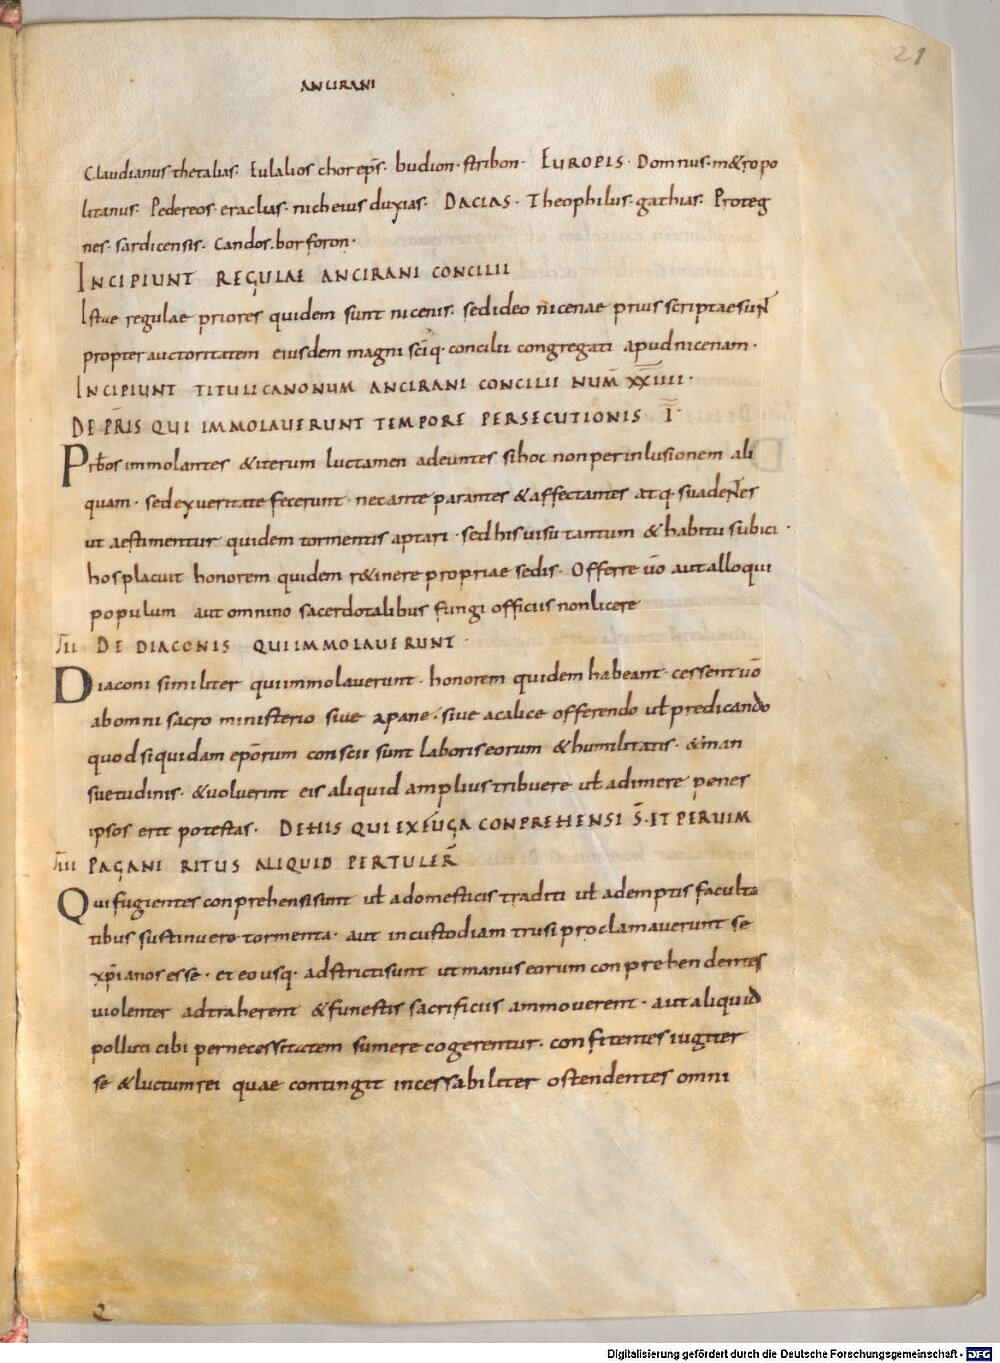 21
ANCIRANI
Claudianus thetalias. Eulalios chor eps̄. budion. stribon. EUROPIS. Domnus. m&ropo
litanus. Pedereos. eraclias. nicheius duxias. DACIAS. Theophilus. gathias. Proteg
nes. sardicensis. Candos. bor foron.
INCIPIUNT REGULAE ANCIRANI CONCILII
Istae regulae priores quidem sunt nicenis. sed ideo nicenae prius scriptae sunt
propter auctoritatem eiusdem magni sc̄iq. concilii congregati apud nicenam.
INCIPIUNT TITULI CANONUM ANCIRANI CONCILII NUM̄ XXIIII.
DE PR̄IS QUI IMMOLAUERUNT TEMPORE PERSECUTIONIS I.
Pr̄bos immolantes &iterum luctamen adeuntes si hoc non per inlusionem ali
quam. sed ex ueritate fecerunt. nec ante parantes & affectantes atq. suadentes
ut aestimentur quidem tormentis aptari. sed his uisu tantum & habitu subici.
hos placuit honorem quidem r&inere propriae sedis. Offerre ūo aut alloqui
populum aut omnino sacerdotalibus fungi officiis non licere
II DE DIACONIS QUI IMMOLAUERUNT.
Diaconi similiter qui immolauerunt. honorem quidem habeant. cessent ūo
ab omni sacro ministerio siue a pane. siue a calice offerendo ul̄ predicando
quod si quidam epōrum conscii sunt laboris eorum & humilitatis. & man
suetudinis. & uoluerint eis aliquid amplius tribuere ul̄ adimere penes
ipsos erit potestas. DE HIS QUI EX FUGA CONPREHENSI S̄. ET PER UIM
III PAGANI RITUS ALIQUID PERTULER̄
Qui fugientes conprehensi sunt ul̄ a domesticis traditi ul̄ ademptis faculta
tibus sustinuere tormenta. aut in custodiam trusi proclamauerunt se
xp̄ianos esse. et eo usq. adstricti sunt ut manus eorum conprehendentes
uiolenter adtraherent & funestis sacrificiis ammouerent. aut aliquid
polluti cibi per necessitatem sumere cogerentur. confitentes iugiter
se & luctum rei quae contingit incessabiliter ostendentes omni
Digitalisierung gefördert durch die Deutsche Forschungsgemeinschaft - DFG